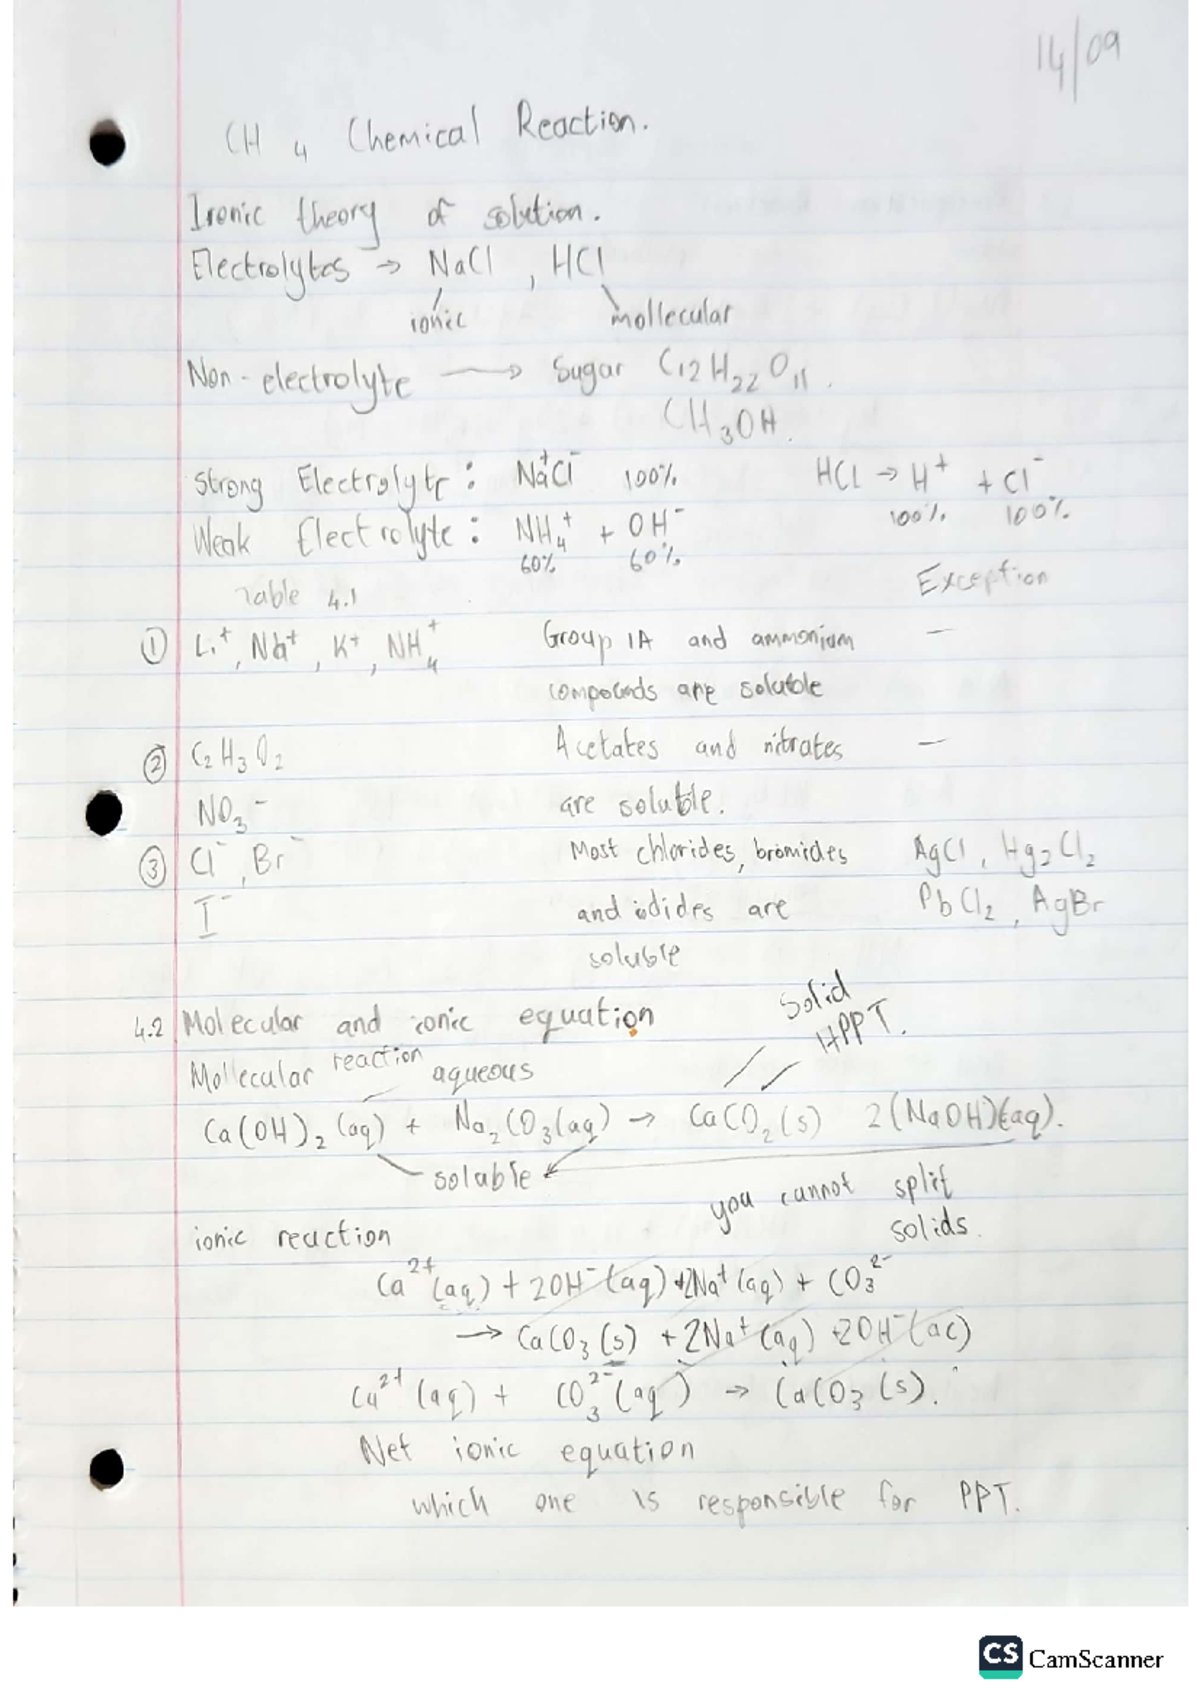 14/09
CH 4 Chemical Reaction.
Ironic theory of solution.
Electrolytes → NaCl , HCl
ionic mollecular
Non-electrolyte → Sugar C12H22O11.
CH3OH.
Strong Electrolyte : Na+Cl- 100% HCl → H+ + Cl-
100% 100%
Weak Electrolyte : NH4+ + OH-
60% 60%
Table 4.1 Exception
① Li+, Na+, K+, NH4+ Group 1A and ammonium —
compounds are soluble
② C2H3O2 Acetates and nitrates —
NO3- are soluble.
③ Cl-, Br- Most chlorides, bromides AgCl, Hg2Cl2
I- and iodides are PbCl2, AgBr
soluble
4.2 Molecular and ionic equation
solid
PPT.
Mollecular reaction aqueous
Ca(OH)2 (aq) + Na2CO3(aq) → CaCO2(s) 2(NaOH)(aq).
soluble
you cannot split
solids.
ionic reaction
Ca2+(aq) + 2OH-(aq) + 2Na+(aq) + CO3 2-
→ CaCO3(s) + 2Na+(aq) + 2OH-(ac)
Ca2+(aq) + CO3 2-(aq) → CaCO3(s).
Net ionic equation
which one is responsible for PPT.
CS CamScanner